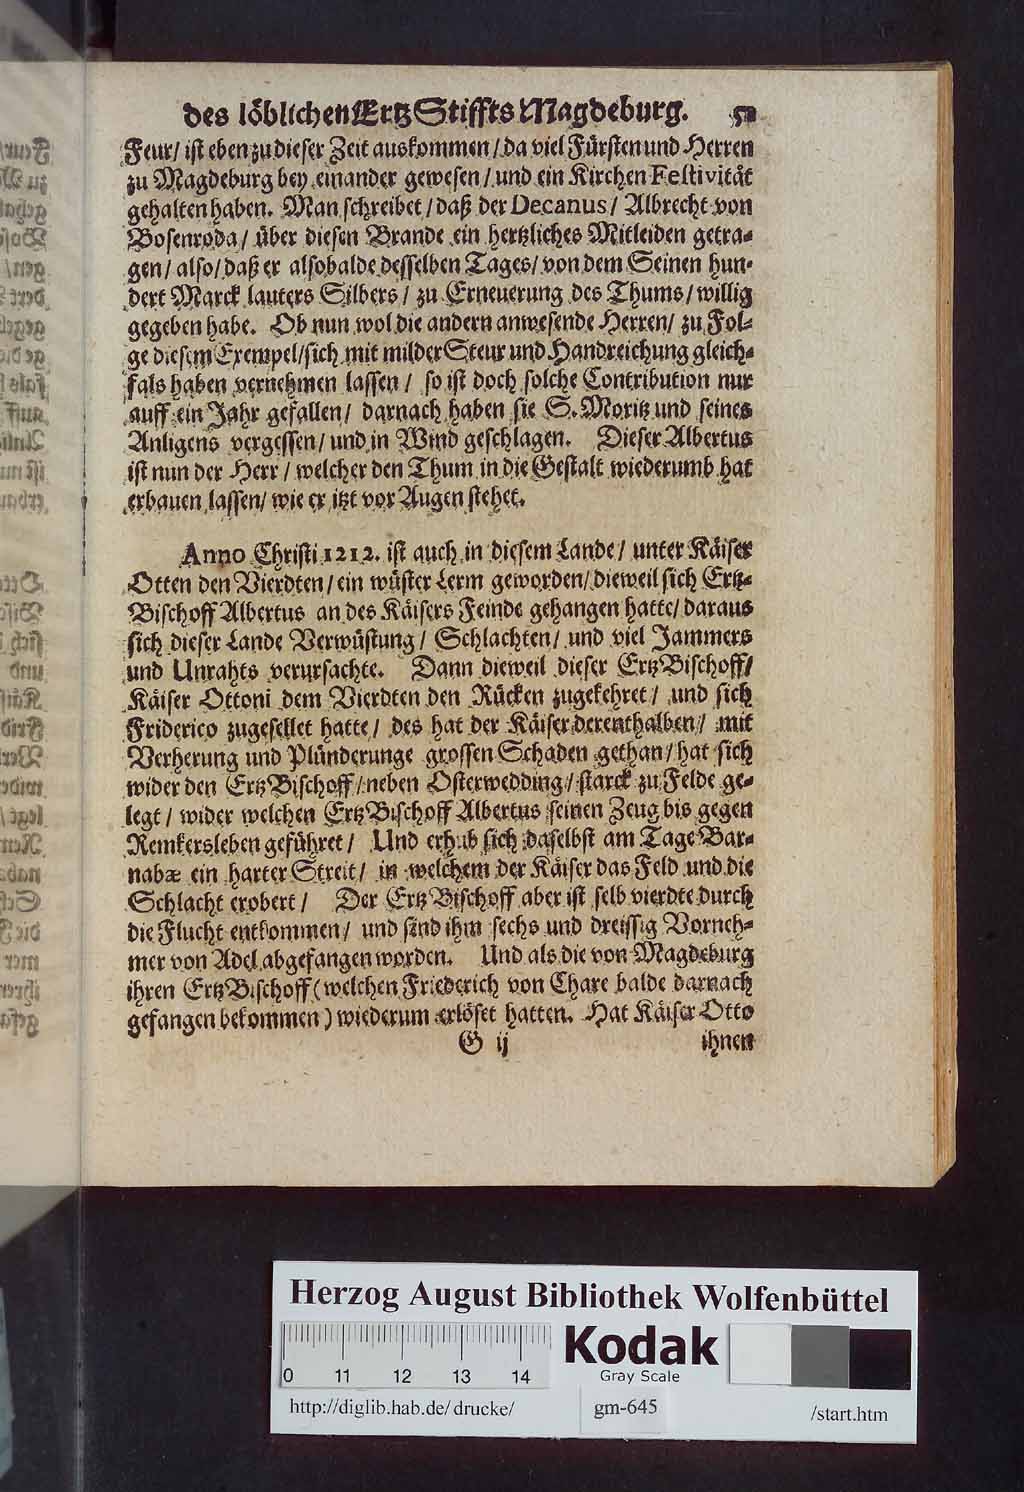 des löblichen Ertz Stiffts Magdeburg. 51
Feur/ ist eben zu dieser Zeit auskommen/ da viel Fürsten und Herren
zu Magdeburg bey einander gewesen/ und ein Kirchen Festivität
gehalten haben. Man schreibet/ daß der Decanus/ Albrecht von
Bosenroda/ über diesen Brande ein hertzliches Mitleiden getra-
gen/ also/ daß er alsobalde desselben Tages/ von dem Seinen hun-
dert Marck lauters Silbers/ zu Erneuerung des Thums/ willig
gegeben habe. Ob nun wol die andern anwesende Herren/ zu Fol-
ge diesem Exempel/ sich mit milder Steur und Handreichung gleich-
fals haben vernehmen lassen/ so ist doch solche Contribution nur
auff ein Jahr gefallen/ darnach haben sie S. Moritz und seines
Anligens vergessen/ und in Wind geschlagen. Dieser Albertus
ist nun der Herr/ welcher den Thum in die Gestalt wiederumb hat
erbauen lassen/ wie er itzt vor Augen stehet.
Anno Christi 1212. ist auch in diesem Lande/ unter Käiser
Otten den Vierdten/ ein wüster Lerm geworden/ dieweil sich Ertz-
Bischoff Albertus an des Käisers Feinde gehangen hatte/ daraus
sich dieser Lande Verwüstung/ Schlachten/ und viel Jammers
und Unrahts verursachte. Dann dieweil dieser ErtzBischoff/
Käiser Ottoni dem Vierdten den Rücken zugekehret/ und sich
Friderico zugesellet hatte/ des hat der Käiser derenthalben/ mit
Verherung und Plünderunge grossen Schaden gethan/ hat sich
wider den ErtzBischoff/ neben Osterwedding/ starck zu Felde ge-
legt/ wider welchen ErtzBischoff Albertus seinen Zeug bis gegen
Remkersleben geführet/ Und erhub sich daselbst am Tage Bar-
nabæ ein harter Streit/ in welchem der Käiser das Feld und die
Schlacht erobert/ Der ErtzBischoff aber ist selb vierdte durch
die Flucht entkommen/ und sind ihm sechs und dreissig Vorneh-
mer von Adel abgefangen worden. Und als die von Magdeburg
ihren ErtzBischoff (welchen Friederich von Chare balde darnach
gefangen bekommen) wiederum erlöset hatten. Hat Käiser Otto
G ij ihnen
Herzog August Bibliothek Wolfenbüttel
Kodak
Gray Scale
0 11 12 13 14
http://diglib.hab.de/drucke/ gm-645 /start.htm